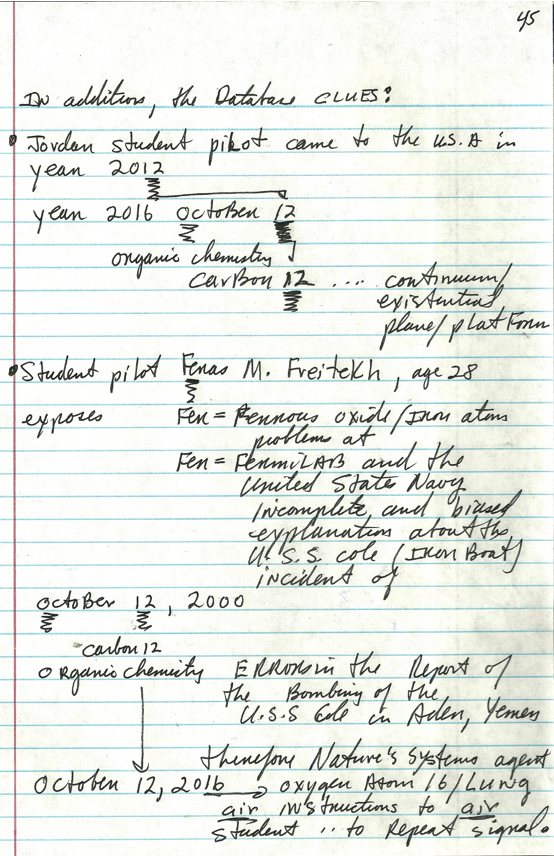 45
IN addition, the Database CLUES:
• Jordan student pilot came to the U.S.A in
year 2012
year 2016 October 12
organic chemistry
carbon 12 .... continuum/
existential
plane/platform
• Student pilot Feras M. Freitekh, age 28
exposes Fer = Ferrous oxide/Iron atom
problems at
Fer = FermiLAB and the
United States Navy
incomplete and biased
explanation about the
U.S.S. Cole (Iron Boat)
incident of
October 12, 2000
carbon 12
Organic chemistry ERRORS in the Report of
the Bombing of the
U.S.S Cole in Aden, Yemen
therefore Nature's Systems agent
October 12, 2016 → oxygen Atom 16/Lung
air instructions to air
student .. to Repeat signal.